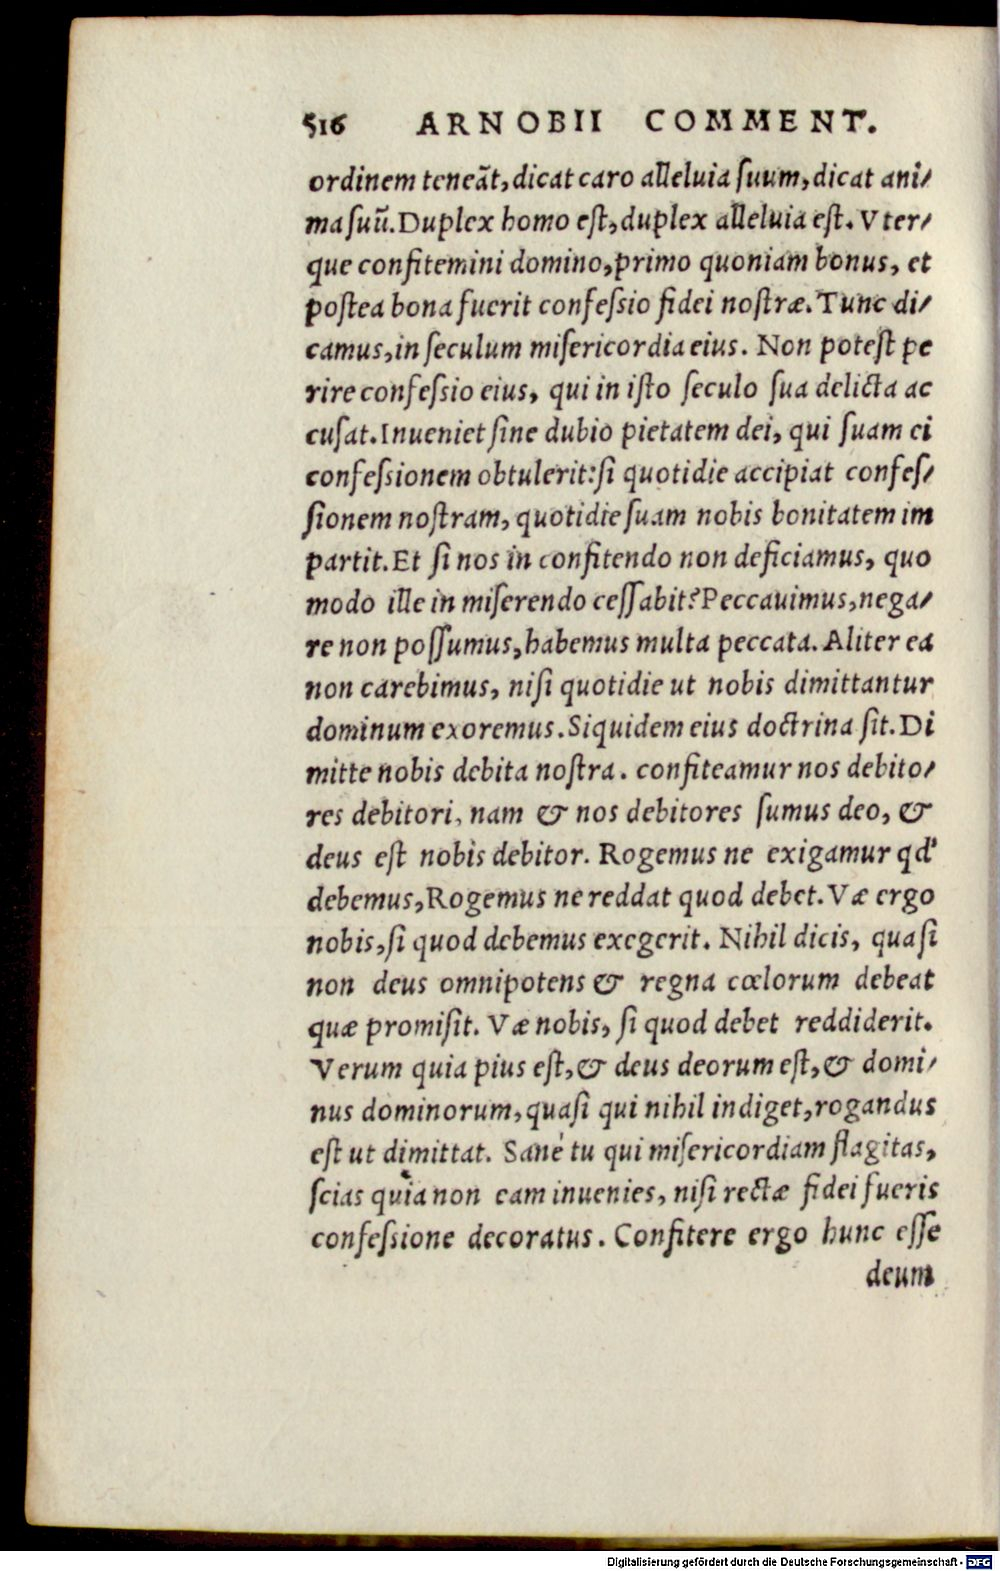 516 ARNOBII COMMENT.
ordinem teneãt, dicat caro alleluia ſuum, dicat ani/
ma ſuũ. Duplex homo eſt, duplex alleluia eſt. Vter/
que confitemini domino, primo quoniam bonus, et
poſtea bona fuerit confeſsio fidei noſtræ. Tunc di/
camus, in ſeculum miſericordia eius. Non poteſt pe
rire confeſsio eius, qui in iſto ſeculo ſua delicta ac
cuſat. Inueniet ſine dubio pietatem dei, qui ſuam ei
confeſsionem obtulerit: ſi quotidie accipiat confeſ/
ſionem noſtram, quotidie ſuam nobis bonitatem im
partit. Et ſi nos in confitendo non deficiamus, quo
modo ille in miſerendo ceſſabit? Peccauimus, nega/
re non poſſumus, habemus multa peccata. Aliter ea
non carebimus, niſi quotidie ut nobis dimittantur
dominum exoremus. Siquidem eius doctrina ſit. Di
mitte nobis debita noſtra. confiteamur nos debito/
res debitori, nam & nos debitores ſumus deo, &
deus eſt nobis debitor. Rogemus ne exigamur qd'
debemus, Rogemus ne reddat quod debet. Væ ergo
nobis, ſi quod debemus exegerit. Nihil dicis, quaſi
non deus omnipotens & regna cœlorum debeat
quæ promiſit. Væ nobis, ſi quod debet reddiderit.
Verum quia pius eſt, & deus deorum eſt, & domi/
nus dominorum, quaſi qui nihil indiget, rogandus
eſt ut dimittat. Sanè tu qui miſericordiam flagitas,
ſcias quia non eam inuenies, niſi rectæ fidei fueris
confeſsione decoratus. Confitere ergo hunc eſſe
deum
Digitalisierung gefördert durch die Deutsche Forschungsgemeinschaft - DFG